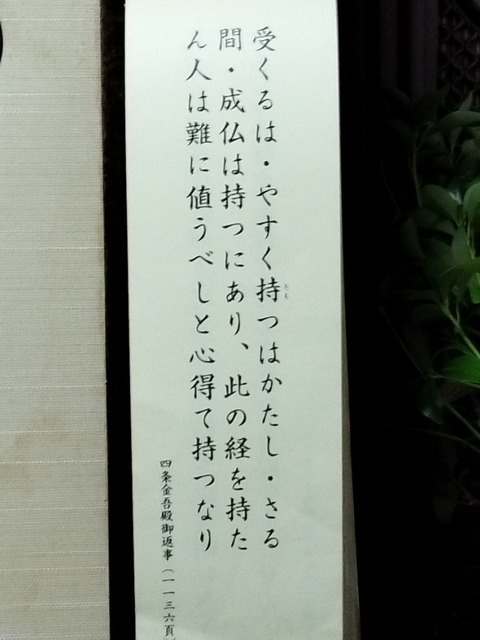 受くるは・やすく持つはかたし・さる
間・成仏は持つにあり、此の経を持た
ん人は難に値うべしと心得て持つなり
たも
四条金吾殿御返事（一一三六頁